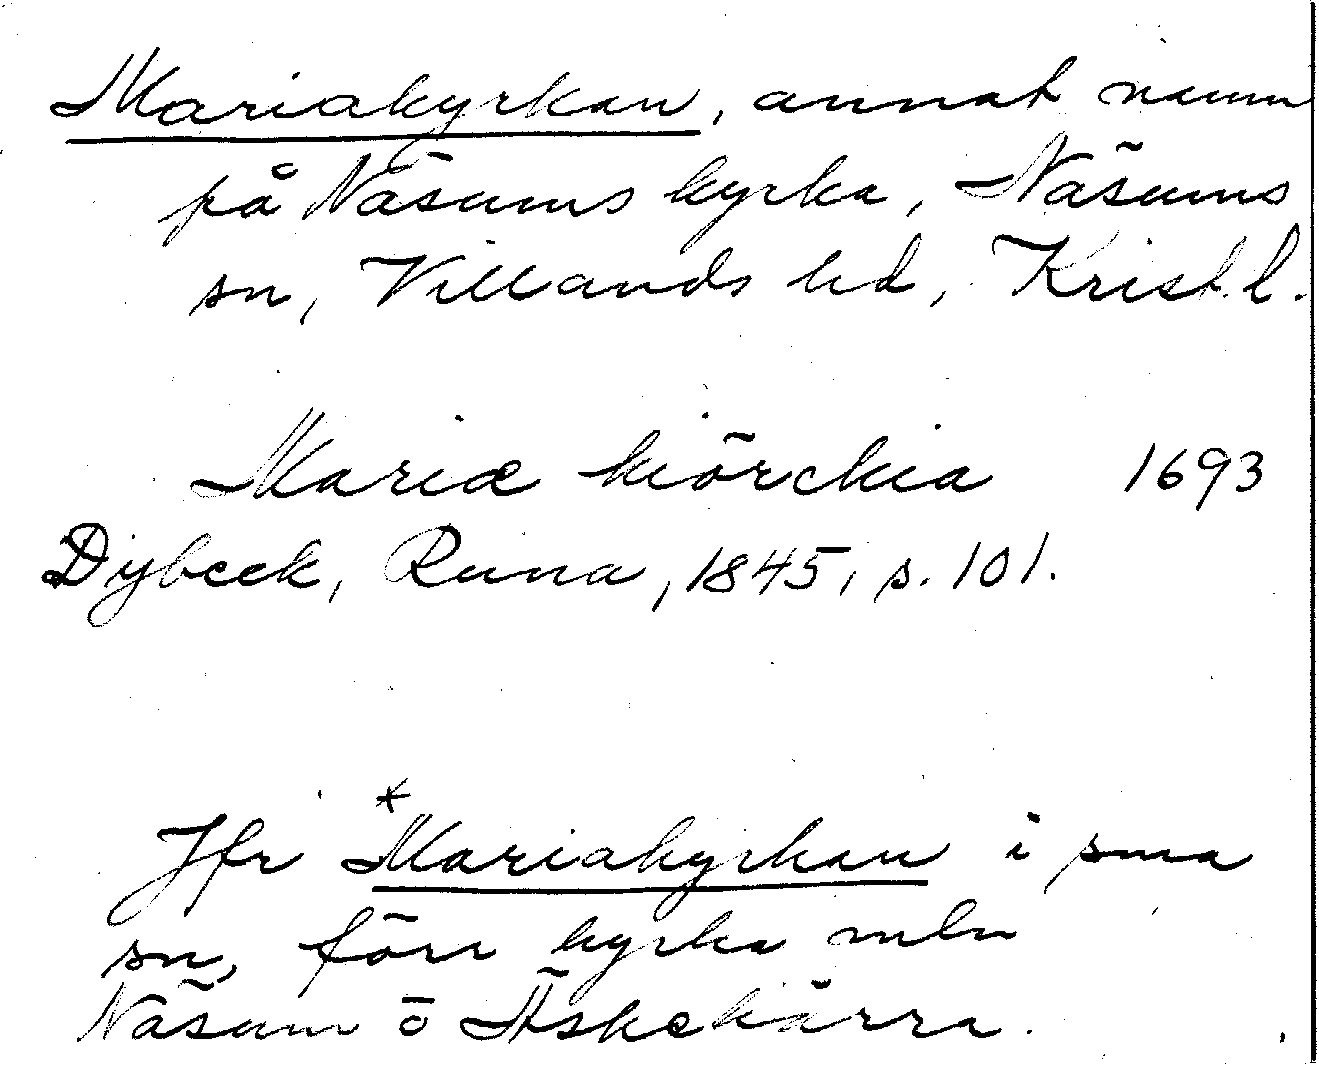 Mariakyrkan, annat namn
på Näsums kyrka, Näsums
sn, Villands hd, Krist.l.
Mariæ kiörckia 1693
Dybeck, Runa, 1845, s. 101.
Jfr *Mariakyrkan i sma
sn, förr kyrka mln
Näsum o Äskekärr.